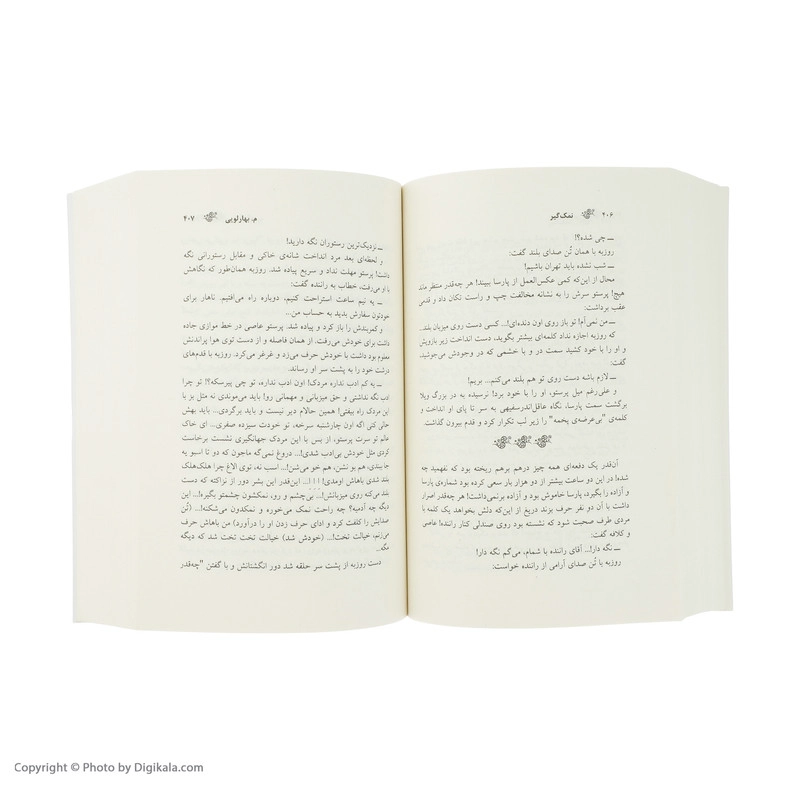 ۴۰۶ نمک‌گیر
ــ چی شده؟!
روزبه با همان تُن صدای بلند گفت:
ــ شب نشده باید تهران باشیم!
محال از این‌که کمی عکس‌العمل از پارسا ببیند! هر چه‌قدر منتظر ماند
هیچ! پرستو سرش را به نشانه مخالفت چپ و راست تکان داد و قدمی
عقب برداشت:
ــ من نمی‌آم! تو باز روی اون دنده‌ای!... کسی دست روی میزبان بلند...
روزبه اجازه نداد کلمه‌ای بیشتر بگوید، دست پرستو را تخت زیر بازویش
و او را با خود کشید سمت در و با خشمی که در وجودش می‌جوشید
گفت:
ــ لازم باشه دست روی تو هم بلند می‌کنم... بریم!
و علی‌رغم میل پرستو، او را با خود برد! نرسیده به در بزرگ ویلا
برگشت سمت پارسا، نگاه عاقل‌اندرسفیهی به سر تا پای او انداخت و
کلمه‌ی "بی‌عرضه‌ی پخمه" را زیر لب تکرار کرد و قدم بیرون گذاشت
آن‌قدر یک دفعه‌ای همه چیز درهم برهم ریخته بود که نفهمید چه
شده! در این دو ساعت بیشتر از دو هزار بار سعی کرده بود شماره‌ی پارسا
و آزاده را بگیرد، پارسا خاموش بود و آزاده برنمی‌داشت! هر چه‌قدر اصرار
داشت با آن دو نفر حرف بزند دریغ از این‌که دلش بخواهد یک کلمه با
مردی طرف صحبت شود که نشسته بود روی صندلی کنار راننده! عاصی
و کلافه گفت:
ــ نگه دار!... آقای راننده با شمام، می‌گم نگه دار!
روزبه با تُن صدای آرامی از راننده خواست:
م. بهارلویی ۴۰۷
ــ نزدیک‌ترین رستوران نگه دارید!
و لحظه‌ای بعد مرد انداخت شانه‌ی خاکی و مقابل رستورانی نگه
داشت! پرستو مهلت نداد و سریع پیاده شد. روزبه همان‌طور که نگاهش
با او می‌رفت، خطاب به راننده گفت:
ــ یه نیم ساعت استراحت کنیم، دوباره راه می‌افتیم. ناهار برای
خودتون سفارش بدید به حساب من...
و کمربندش را باز کرد و پیاده شد. پرستو عاصی در خط موازی جاده
داشت برای خودش می‌رفت، از همان فاصله و از دست توی هوا پراندنش
معلوم بود داشت با خودش حرف می‌زد و غرغر می‌کرد. روزبه با قدم‌های
درشت خود را به پشت سر او رساند.
ــ یه کم ادب نداره مردک! اون ادب نداره، تو چی پیرسکه؟! تو چرا
ادب نگه نداشتی و حق میزبانی و مهمانی رو! باید می‌موندی نه مثل بز با
این مردک راه بیفتی! همین حالام دیر نیست و باید برگردی... باید بهش
حالی کنی اگه اون چارشنبه سرخه، نو خودت سیزده صفری... ای خاک
عالم تو سرت پرستو، از بس با این مردک جهانگیری نشست برخاست
کردی مثل خودش بی‌ادب شدی!... دروغ نمی‌گه ماجون که دو تا اسبو یه
جا ببندی، هم بو نشن، هم خو می‌شن!... اسب نَه، توی الاغ چرا هلک‌هلک
بلند شدی باهاش اومدی! اِ اِ اِ... این‌قدر این بشر دور از نزاکته که دست
بلند می‌کنه روی میزبانش!... بی‌چشم و رو، نمکشون چشمتو بگیره!... این
دیگه چه آدمیه؟ چه راحت نمک می‌خوره و نمکدون می‌شکنه!... (تُن
صدایش را کلفت کرد و ادای حرف زدن او را درآورد) من باهاش حرف
می‌زنم، خیالت تخت!... (خودش شد) خیالت تخت تخت شد که دیگه
مگه...
دست روزبه از پشت سر حلقه شد دور انگشتانش و با گفتن "چه‌قدر
Copyright © Photo by Digikala.com